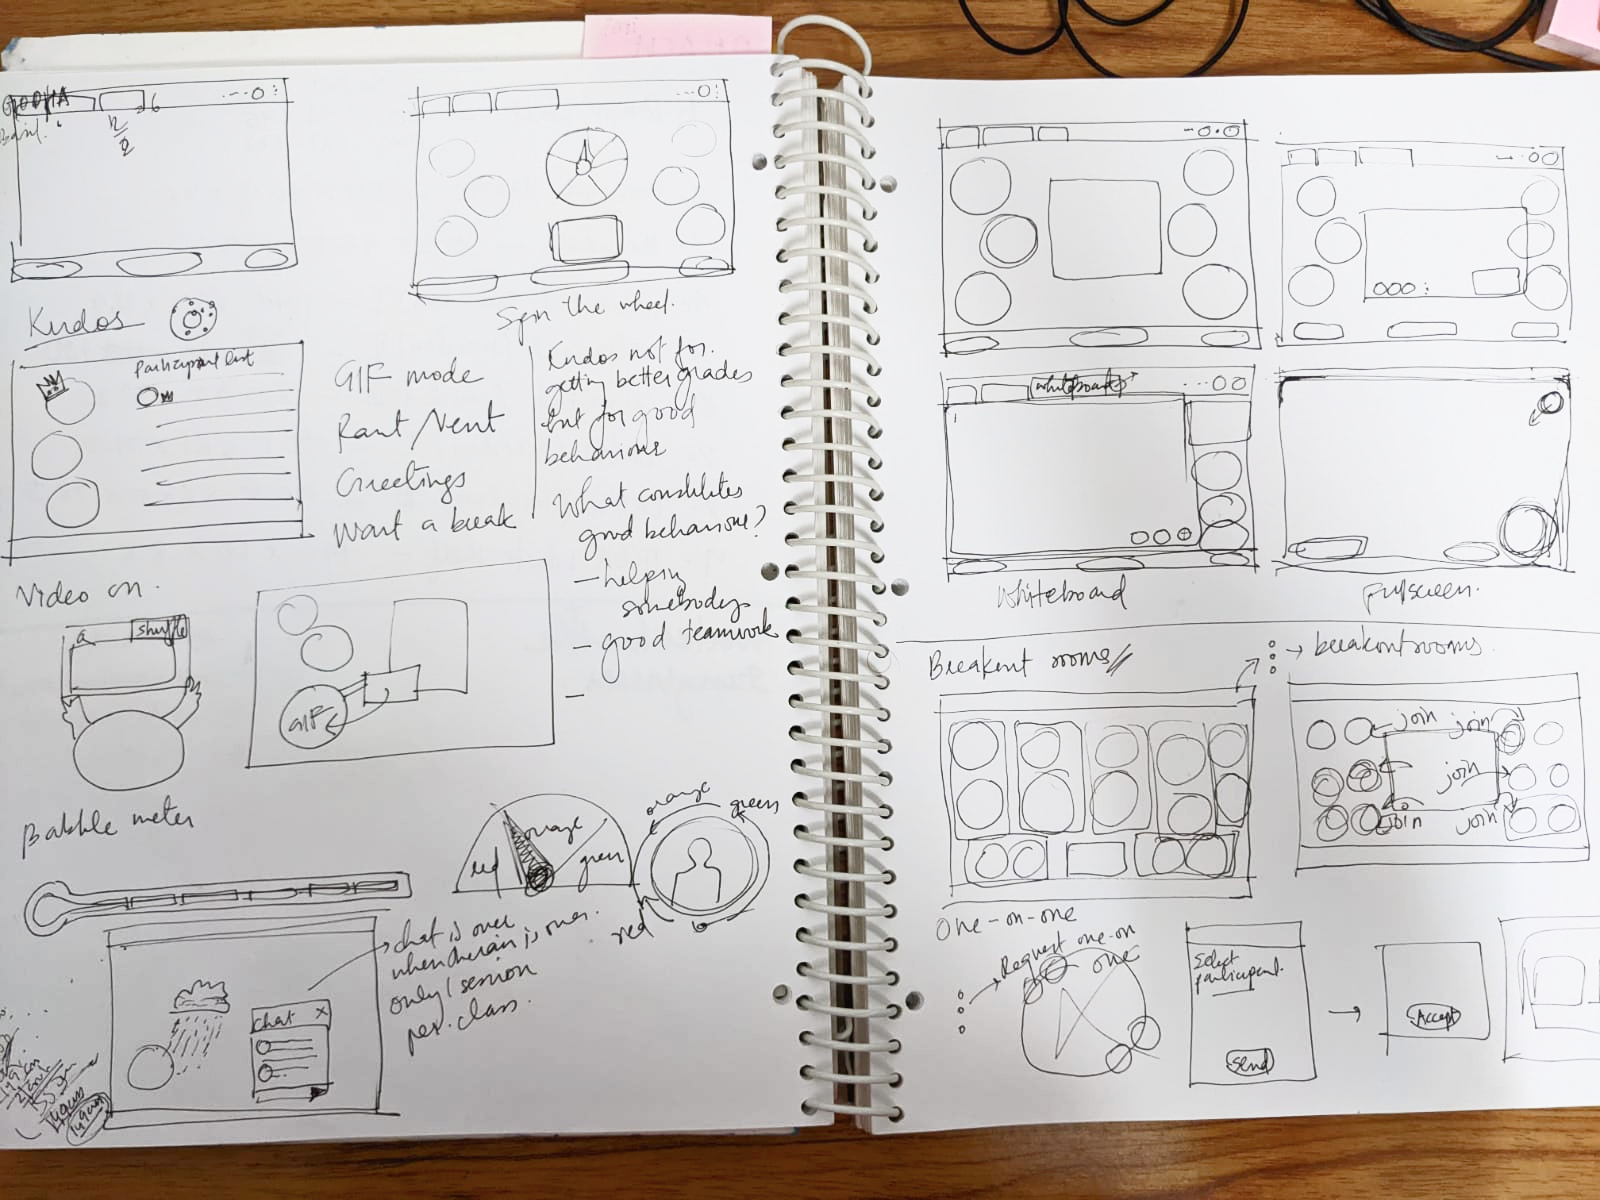 Kudos
Spin the wheel.
Participant list
GIF mode
Rant/Vent
Greetings
Want a break
Kudos not for
getting better grades
but for good
behaviour
What constitutes
good behaviour?
- helping
somebody
- good teamwork
-
Video on.
a
shuffle
GIF
Babble meter
red
orange
green
orange
green
red
chat is over
when the rain is over.
only 1 session
per class.
chat x
whiteboard
Whiteboard
fullscreen.
Breakout rooms
→ breakout rooms.
join
join
join
join
join
One-on-one
Request one-on
one
Select
participant.
Send
Accept